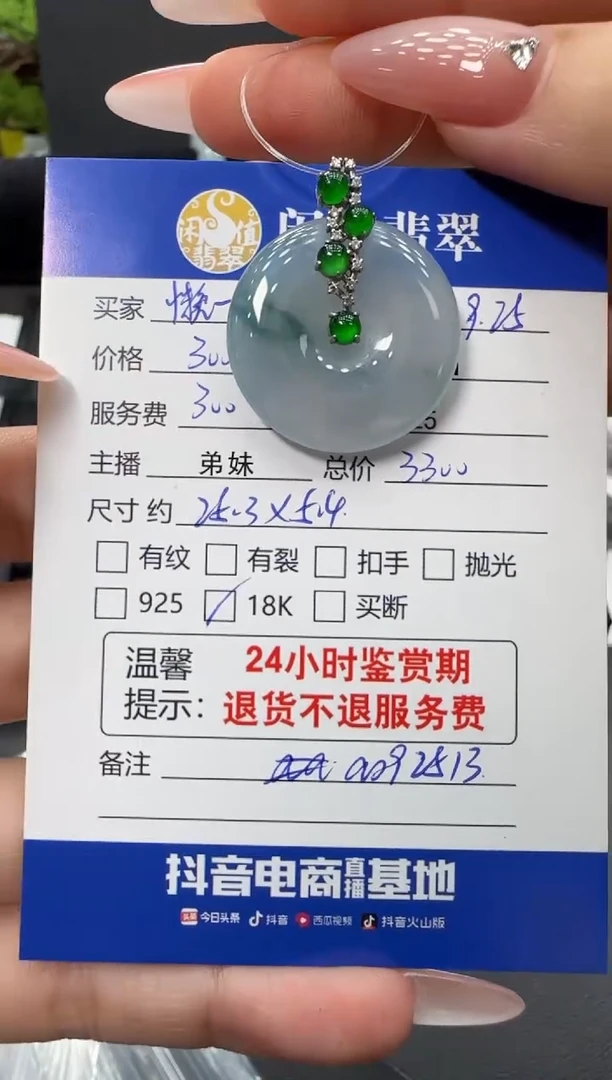 闲值翡翠
闲 翡翠
买家 懒一 9.25
价格 300
服务费 300 25
主播 弟妹 总价 3300
尺寸约 25.3×5.4
有纹 有裂 扣手 抛光
925 18K 买断
温馨提示： 24小时鉴赏期
退货不退服务费
备注 a092513
抖音电商直播基地
头条 今日头条 抖音 西瓜视频 抖音火山版